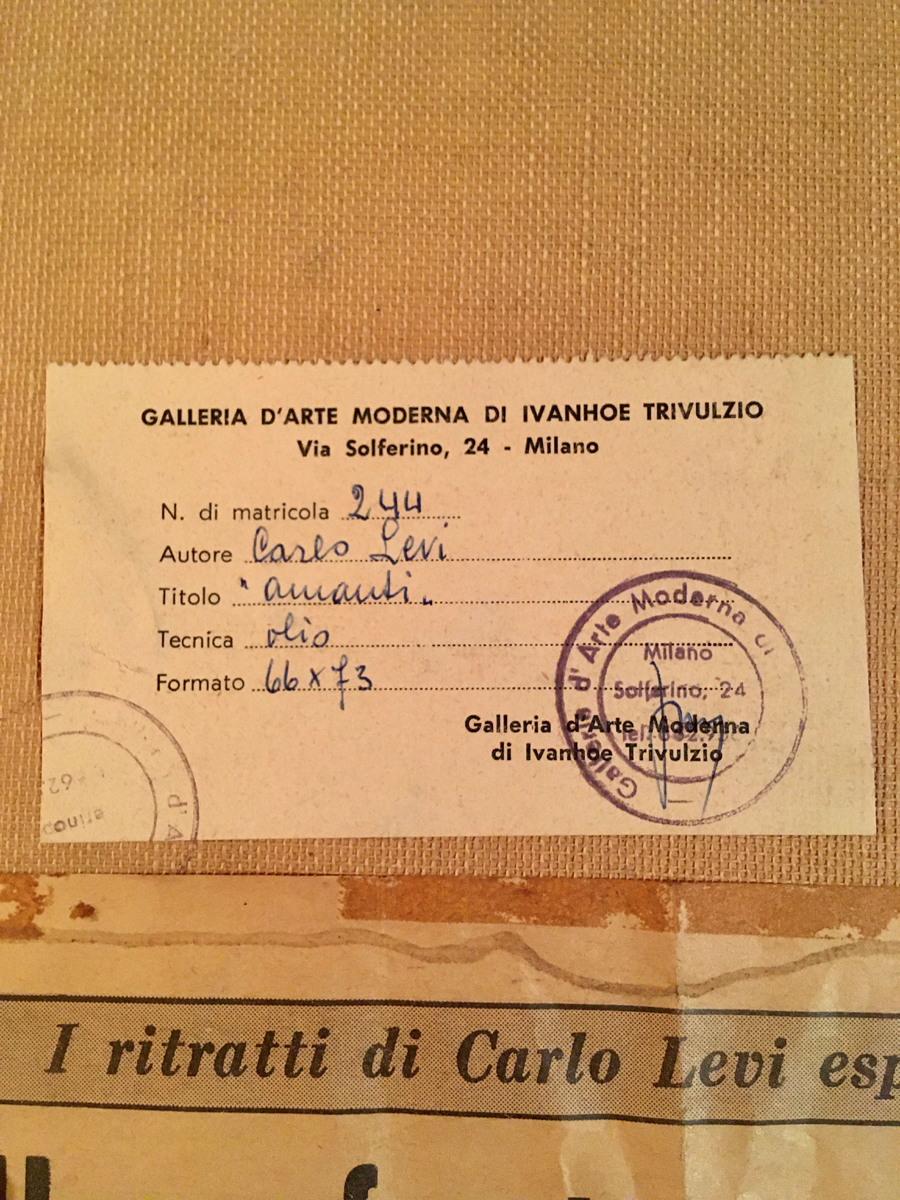 GALLERIA D'ARTE MODERNA DI IVANHOE TRIVULZIO
Via Solferino, 24 - Milano
N. di matricola 244
Autore Carlo Levi
Titolo "Amanti"
Tecnica olio
Formato 66 x 73
Galleria d'Arte Moderna
di Ivanhoe Trivulzio
Galleria d'Arte Moderna di
Milano
Solferino, 24
Tel.
d'A
erino
62
I ritratti di Carlo Levi esp